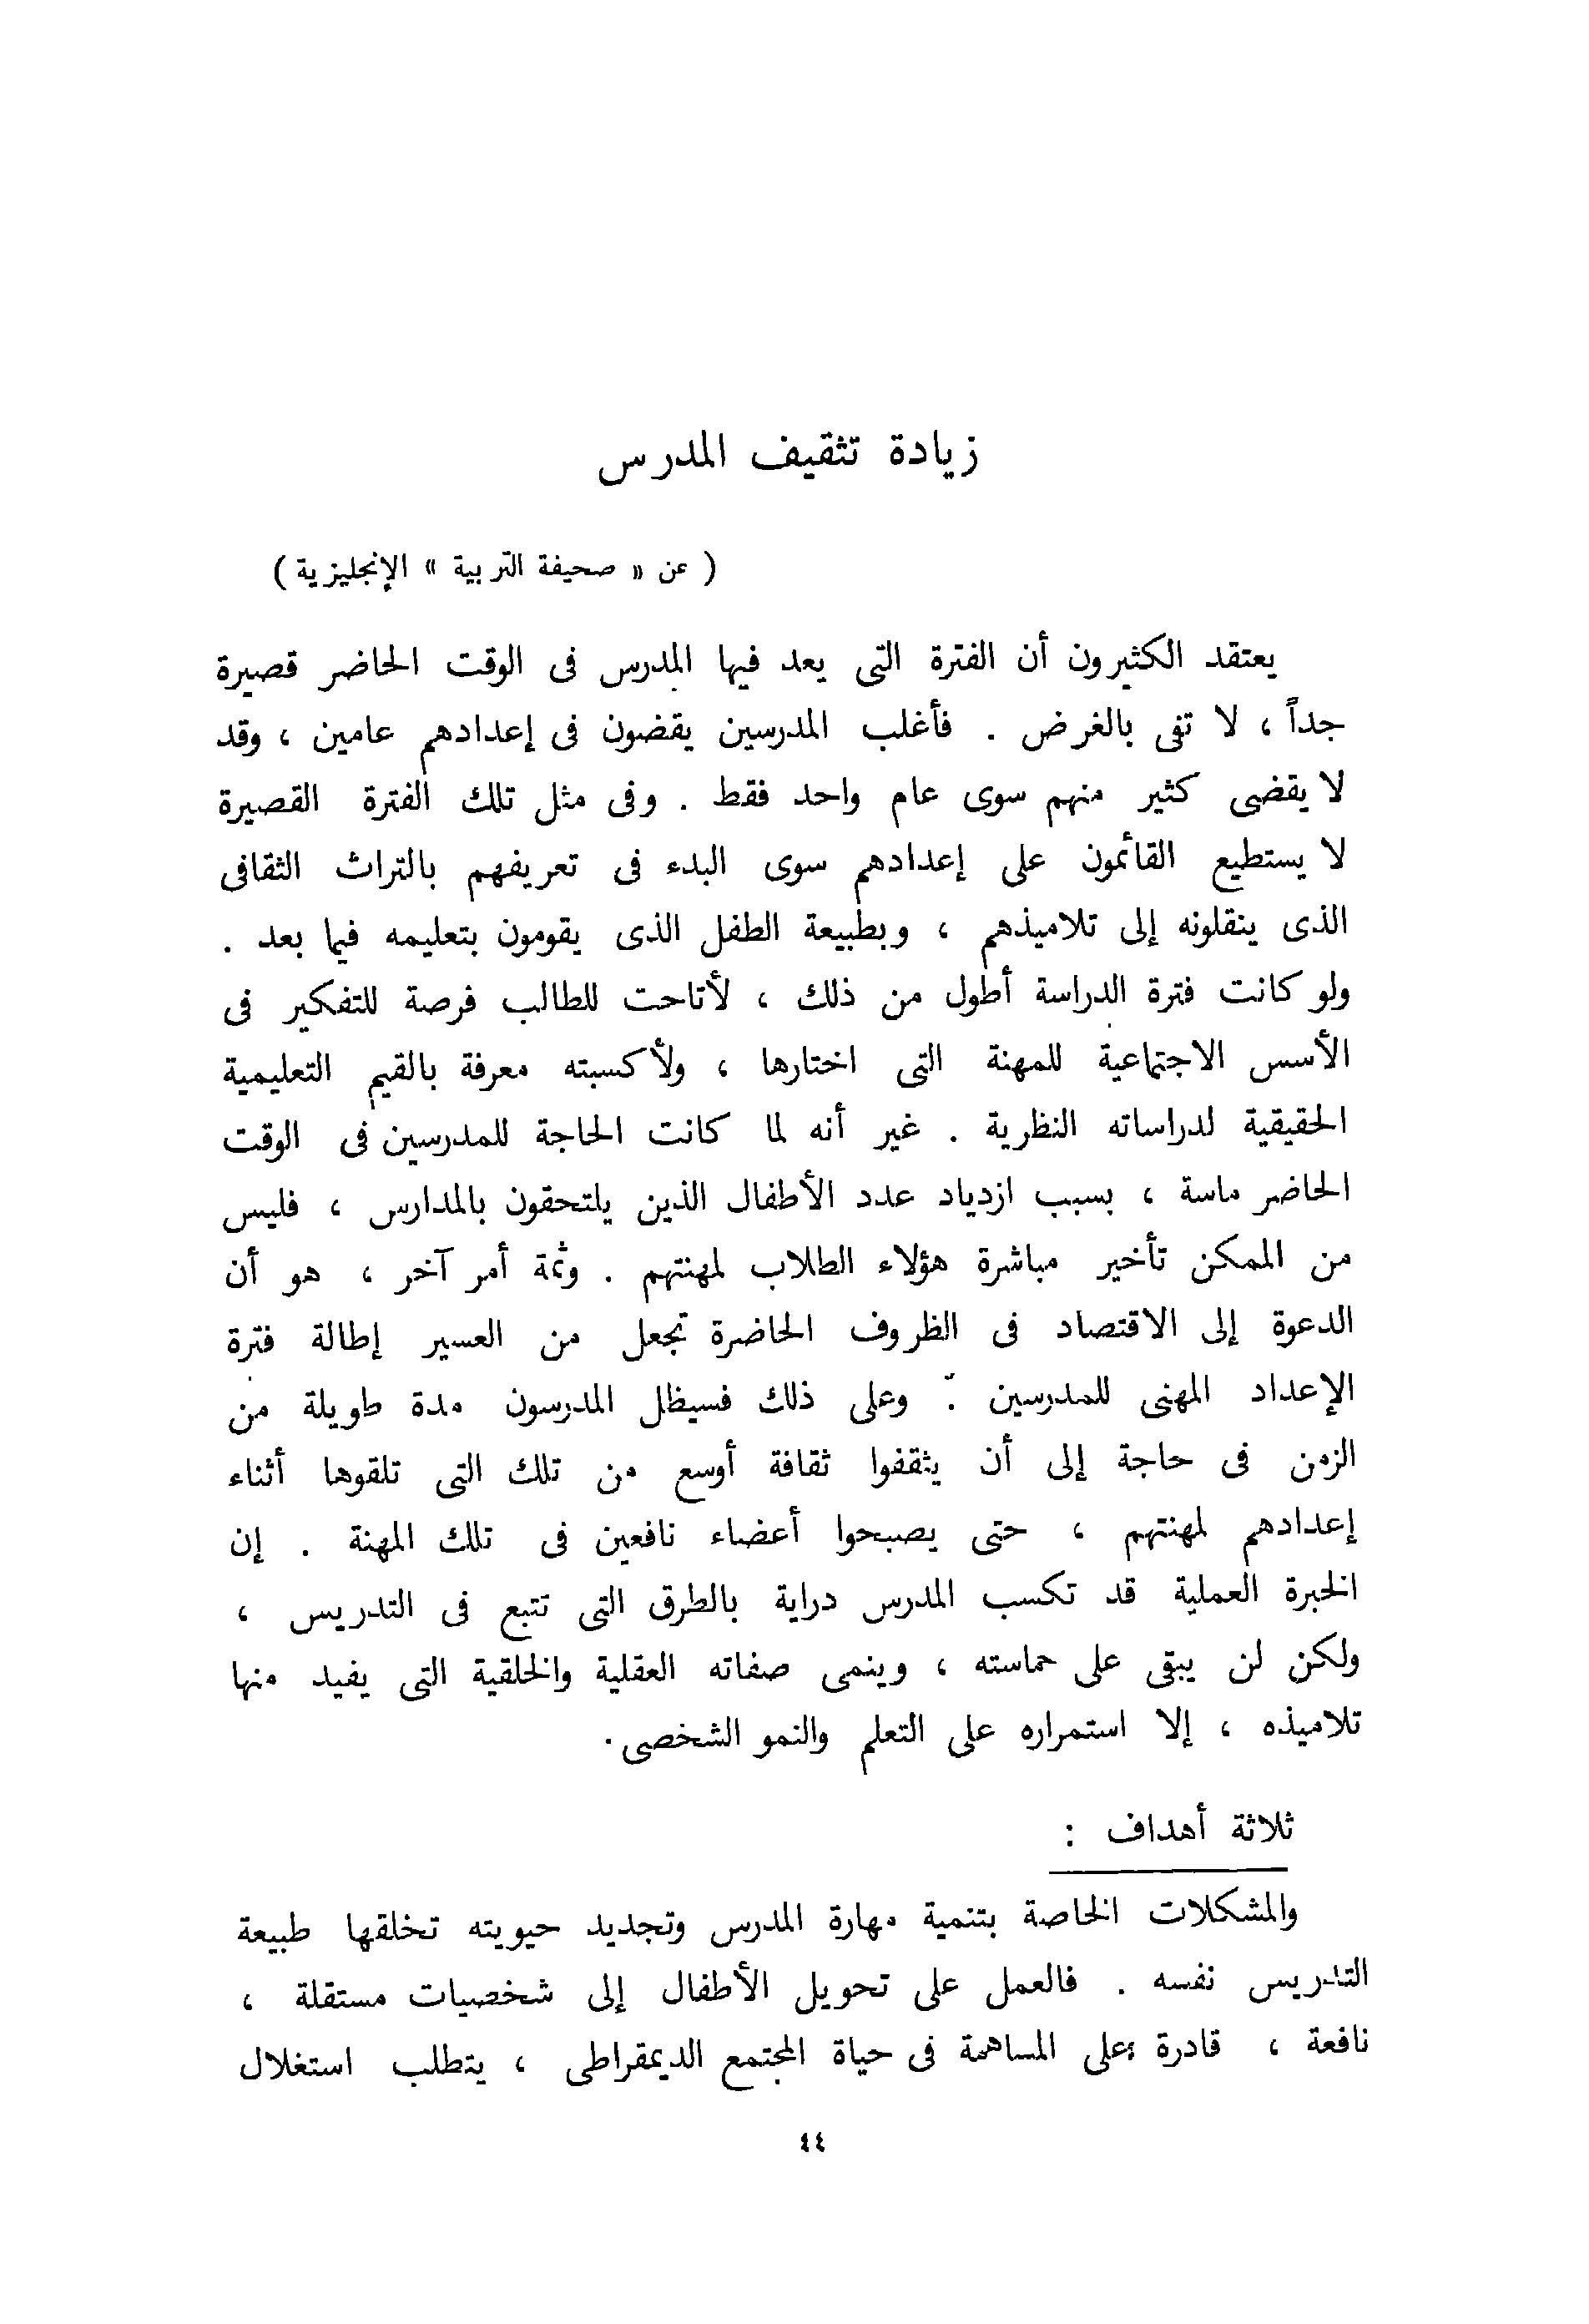 زيادة تثقيف المدرس
( عن « صحيفة التربية » الإنجليزية )
يعتقد الكثيرون أن الفترة التى يعد فيها المدرس فى الوقت الحاضر قصيرة
جداً ، لا تفى بالغرض . فأغلب المدرسين يقضون فى إعدادهم عامين ، وقد
لا يقضى كثير منهم سوى عام واحد فقط . وفى مثل تلك الفترة القصيرة
لا يستطيع القائمون على إعدادهم سوى البدء فى تعريفهم بالتراث الثقافى
الذى ينقلونه إلى تلاميذهم ، وبطبيعة الطفل الذى يقومون بتعليمه فيما بعد .
ولو كانت فترة الدراسة أطول من ذلك ، لأتاحت للطالب فرصة للتفكير فى
الأسس الاجتماعية للمهنة التى اختارها ، ولأكسبته معرفة بالقيم التعليمية
الحقيقية لدراساته النظرية . غير أنه لما كانت الحاجة للمدرسين فى الوقت
الحاضر ماسة ، بسبب ازدياد عدد الأطفال الذين يلتحقون بالمدارس ، فليس
من الممكن تأخير مباشرة هؤلاء الطلاب لمهنتهم . وثمة أمر آخر ، هو أن
الدعوة إلى الاقتصاد فى الظروف الحاضرة تجعل من العسير إطالة فترة
الإعداد المهنى للمدرسين . وعلى ذلك فسيظل المدرسون مدة طويلة من
الزمن فى حاجة إلى أن يثقفوا ثقافة أوسع من تلك التى تلقوها أثناء
إعدادهم لمهنتهم ، حتى يصبحوا أعضاء نافعين فى تلك المهنة . إن
الخبرة العملية قد تكسب المدرس دراية بالطرق التى تتبع فى التدريس ،
ولكن لن يبقى على حماسته ، وينمى صفاته العقلية والخلقية التى يفيد منها
تلاميذه ، إلا استمراره على التعلم والنمو الشخصى .
ثلاثة أهداف :
والمشكلات الخاصة بتنمية مهارة المدرس وتجديد حيويته تخلقها طبيعة
التدريس نفسه . فالعمل على تحويل الأطفال إلى شخصيات مستقلة ،
نافعة ، قادرة على المساهمة فى حياة المجتمع الديمقراطى ، يتطلب استغلال
٤٤